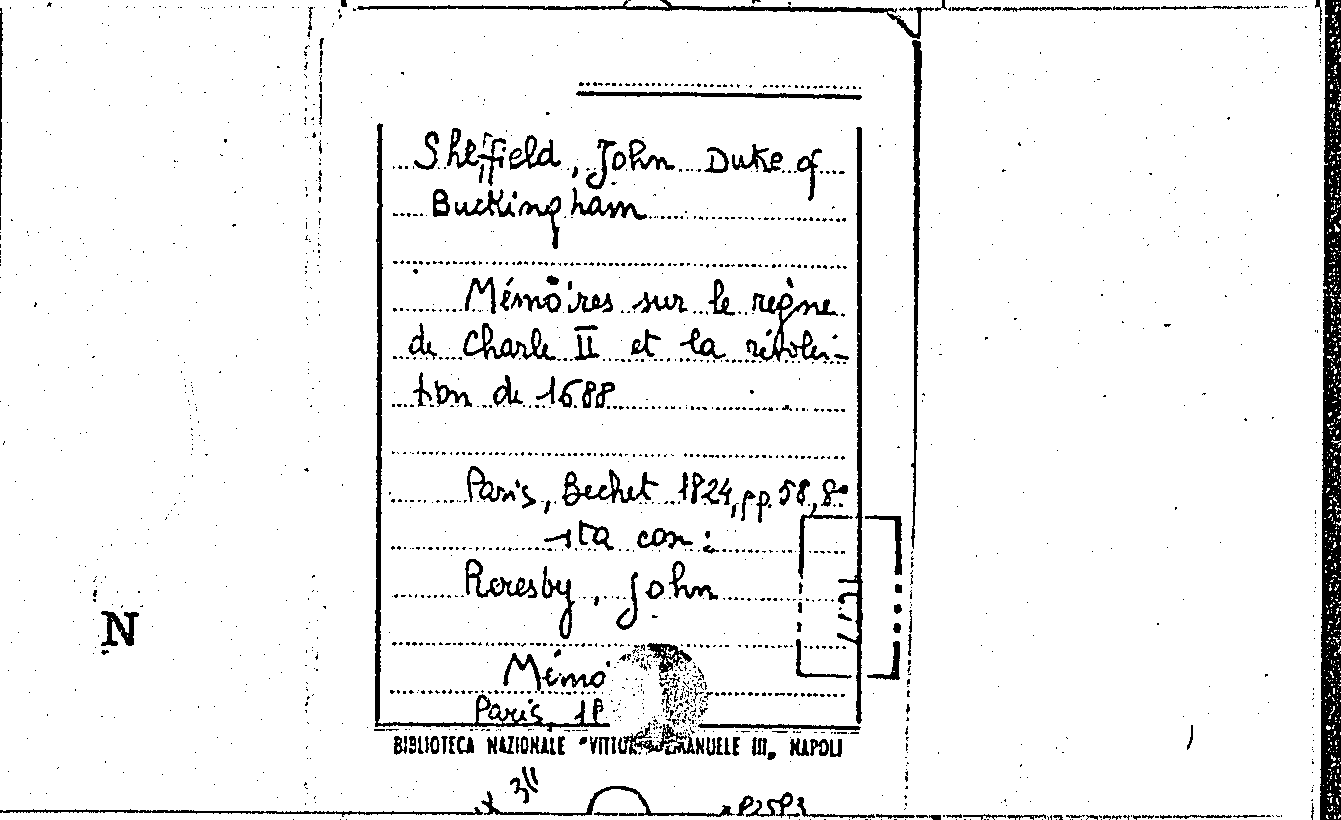 Sheffield, John Duke of
Buckingham
Mémoires sur le regne
de Charle II et la révolu-
tion de 1688
Paris, Bechet 1824, pp. 58, 8°
sta con:
Reresby, John
Mémo
Paris, 18
BIBLIOTECA NAZIONALE "VITTOR EMANUELE III, NAPOLI
N
311